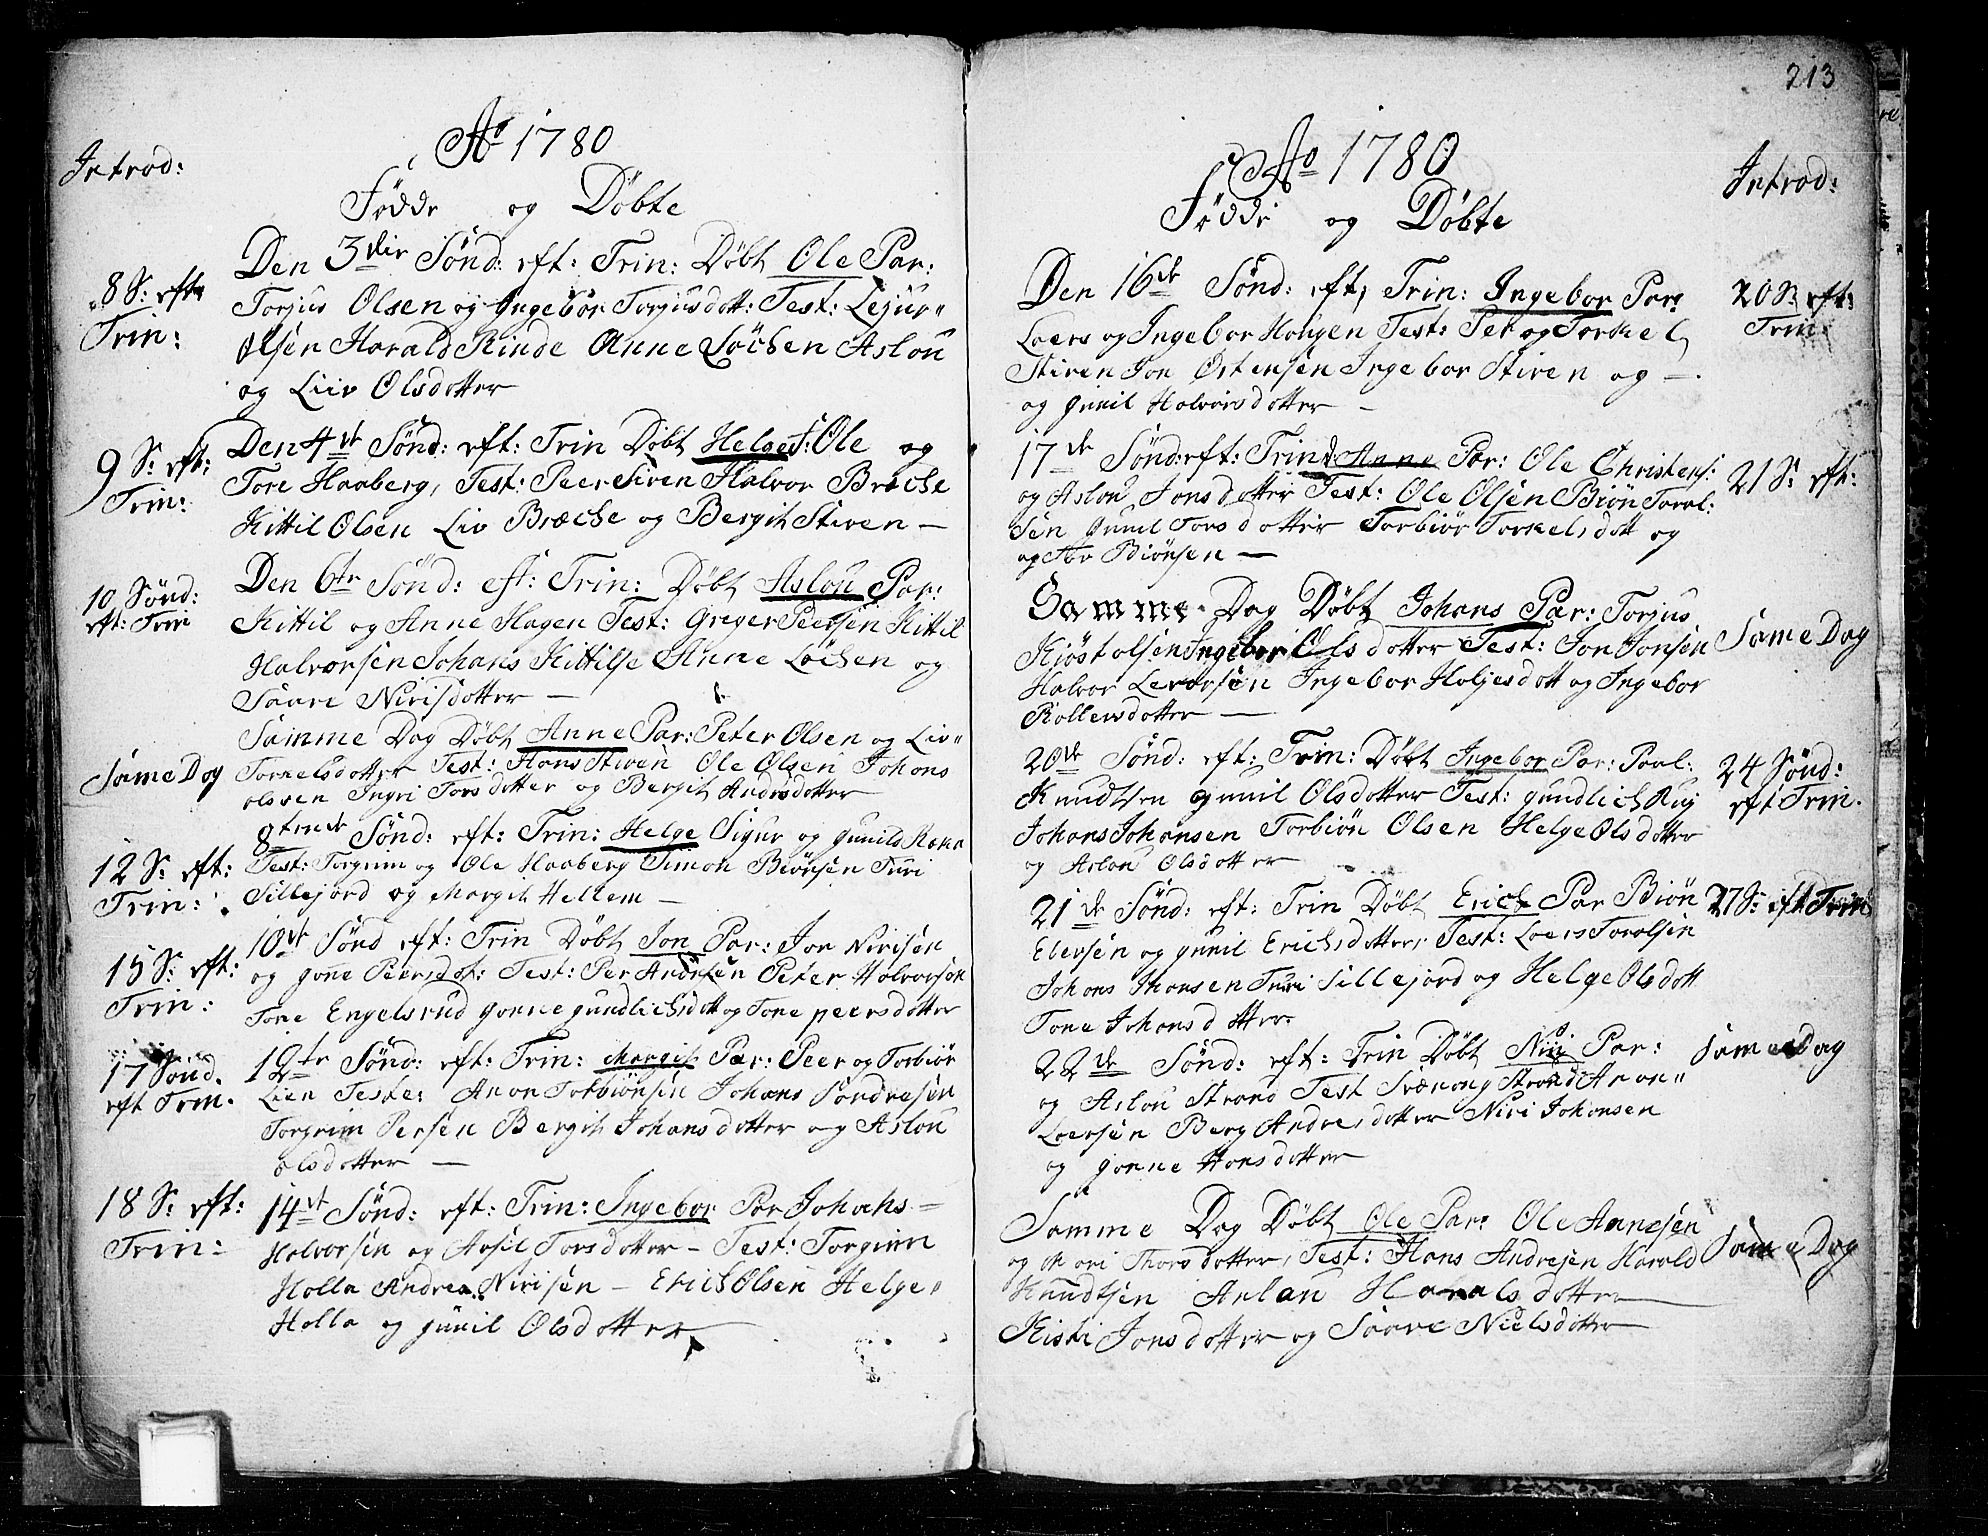 Ao 1780
Introd:
Födde og Döbte
8 S: eft:
Trin:
Den 3die Sönd: eft: Trin: Döbt Ole Par:
Torjus Olsen og Ingebor Torjusdott: Test: Lejur
Olsen Harald Rinde Anne Löchen Aslou
og Liiv Olsdotter
9 S: eft:
Trin:
Den 4de Sönd: eft: Trin Döbt Helge f: Ole og
Tore Haaberg, Test: Peer Stiren Halvor Bræche
Kittil Olsen Liv Bræche og Bergit Stiven —
10 Sönd:
eft: Trin
Den 6te Sönd: eft: Trin: Döbt Aslou Par:
Kittil og Anne Hagen Test: Greger Peersen Kittil
Halvorsen Johans Kittilse Anne Löchen og
Saare Nirisdotter —
Same Dag
Samme Dag Döbt Anne Par: Peter Olsen og Liv
Torkelsdotter Test: Hans Stiven Ole Olsen Johans
olssen Ingri Torsdotter og Bergit Andrisdotter
12 S: eft:
Trin:
8tende Sönd: eft: Trin: Helge Sigur og gunils
Test: Torgrim og Ole Haaberg Simon Biönsen Turi
Sillejord og Margit Hellem —
15 S: eft:
Trin:
10de Sönd eft: Trin Döbt Jon Par: Jon Nirisen
og gonne Peersdot: Test: Per Andersen Peter Halvorsen
Tore Engelsrud gonne gundlichsdott og Tone peersdotter
17 Sönd.
eft Trin.
12te Sönd: eft: Trin: Margit Par: Peer og Torbiör
Lien Teste: Anon Torbiönsen Johans Sondresen
Torgrim Persen Bergit Johansdotter og Aslou
olsdotter —
18 S: eft:
Trin:
14de Sönd: eft: Trin: Ingebor Par Johans
Halvorsen og Aasil Torsdotter — Test: Torgrim
Holla Andrea Nirisen — Erich Olsen Helge
Holla og gunil Olsdotter
213
Ao 1780
Introd:
Födde og Döbte
Den 16de Sönd: eft, Trin: Ingebor Par:
Laers og Ingebor Haugen Test: Per og Torkel
Stiven Jon Östensen Ingebor Stiven og —
og gunil Halvorsdotter —
20 S: eft:
Trin:
17de Sönd: eft: Trin d: Anne Par: Ole Christens:
og Aslou Jonsdotter Test: Ole Olsen Biön Toral:
sen gunil Torsdotter Torbiör Torkelsdott og
og Tor Biönsen —
21 S: eft:
Samme Dag Döbt Johans Par: Torjus
Kjöstolsen Ingebor Olsdotter Test: Jon Jonsen
Halvor Leversen Ingebor Holjesdott og Ingebor
Rollevsdotter —
Same Dag
20de Sönd: eft: Trin: Döbt Ingebor Par: Paal:
Knudtsen gunil Olsdotter Test: gundlich Ruj
Johans Johansen Torbiön Olsen Helge Olsdotter
og Aslou Olsdotter
24 Sönd:
eft Trin.
21de Sönd: eft: Trin Döbt Erich Par Biön
Elevsen og gunil Erichsdotter, Test: Laers Toralsen
Johans Hansen Turi Sillejord og Helge Olsdott
Tone Johansdotter
27 S: eft Trin
22de Sönd: eft: Trin Döbt Niri Par:
og Aslou Strand Test Svænong Strand Anon
Laersen Berg Andresdotter Niri Johansen
og gonne Hansdotter
Same Dag
Samme Dag Döbt Ole Par: Ole Annesen
og Mari Thorsdotter, Test: Hans Andresen Harald
Knudtsen Aslau Haralsdotter
Kisti Jonsdotter og Saare Nielsdotter
Same Dag